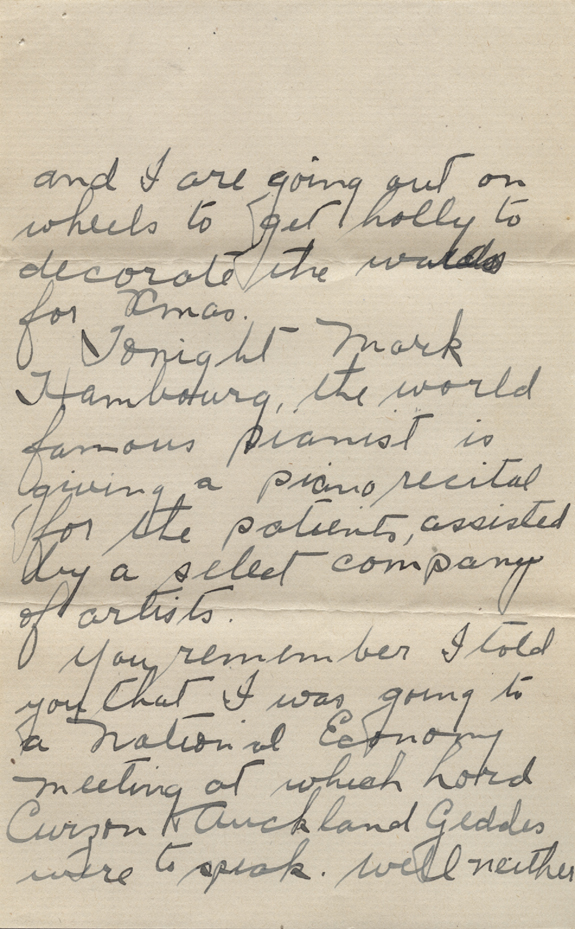 and I are going out on
wheels to get holly to
decorate the wards
for Xmas.
Tonight Mark
Hambourg, the world
famous pianist is
giving a piano recital
for the patients, assisted
by a select company
of artists.
You remember I told
you that I was going to
a National Economy
meeting at which Lord
Curzon & Auckland Geddes
were to speak. Well neither